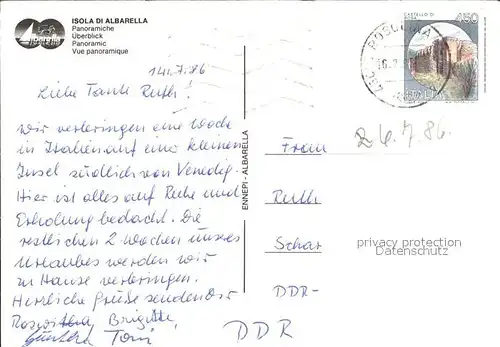 ISOLA DI ALBARELLA
Panoramiche
Überblick
Panoramic
Vue panoramique
albarella
14.7.86
Liebe Tante Ruth!
Wir verbringen eine Woche
in Italien auf einer kleinen
Insel südlich von Venedig.
Hier ist alles auf Ruhe und
Erholung bedacht. Die
restlichen 2 Wochen unseres
Urlaubes werden wir
zu Hause verbringen.
Herzliche Grüße senden Dir
Roswitha, Brigitte,
Günther Toni
ENNEPI - ALBARELLA
CASTELLO DI
450
ITALIA
26.7.86.
Frau
Ruth
Schar
privacy protection
Datenschutz
DDR-
DDR